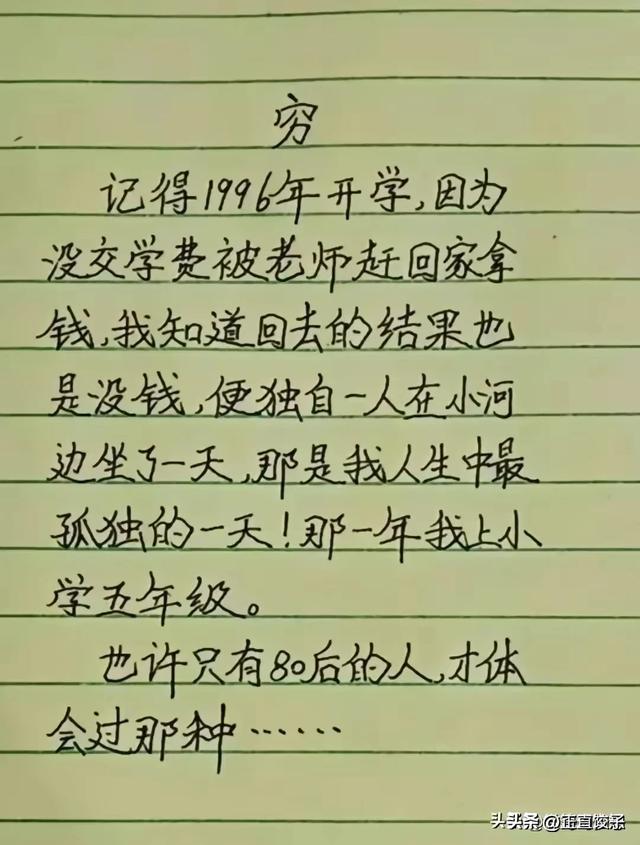 穷
记得1996年开学,因为
没交学费被老师赶回家拿
钱,我知道回去的结果也
是没钱,便独自一人在小河
边坐了一天,那是我人生中最
孤独的一天!那一年我上小
学五年级。
也许只有80后的人,才体
会过那种……
头条@正直俊子